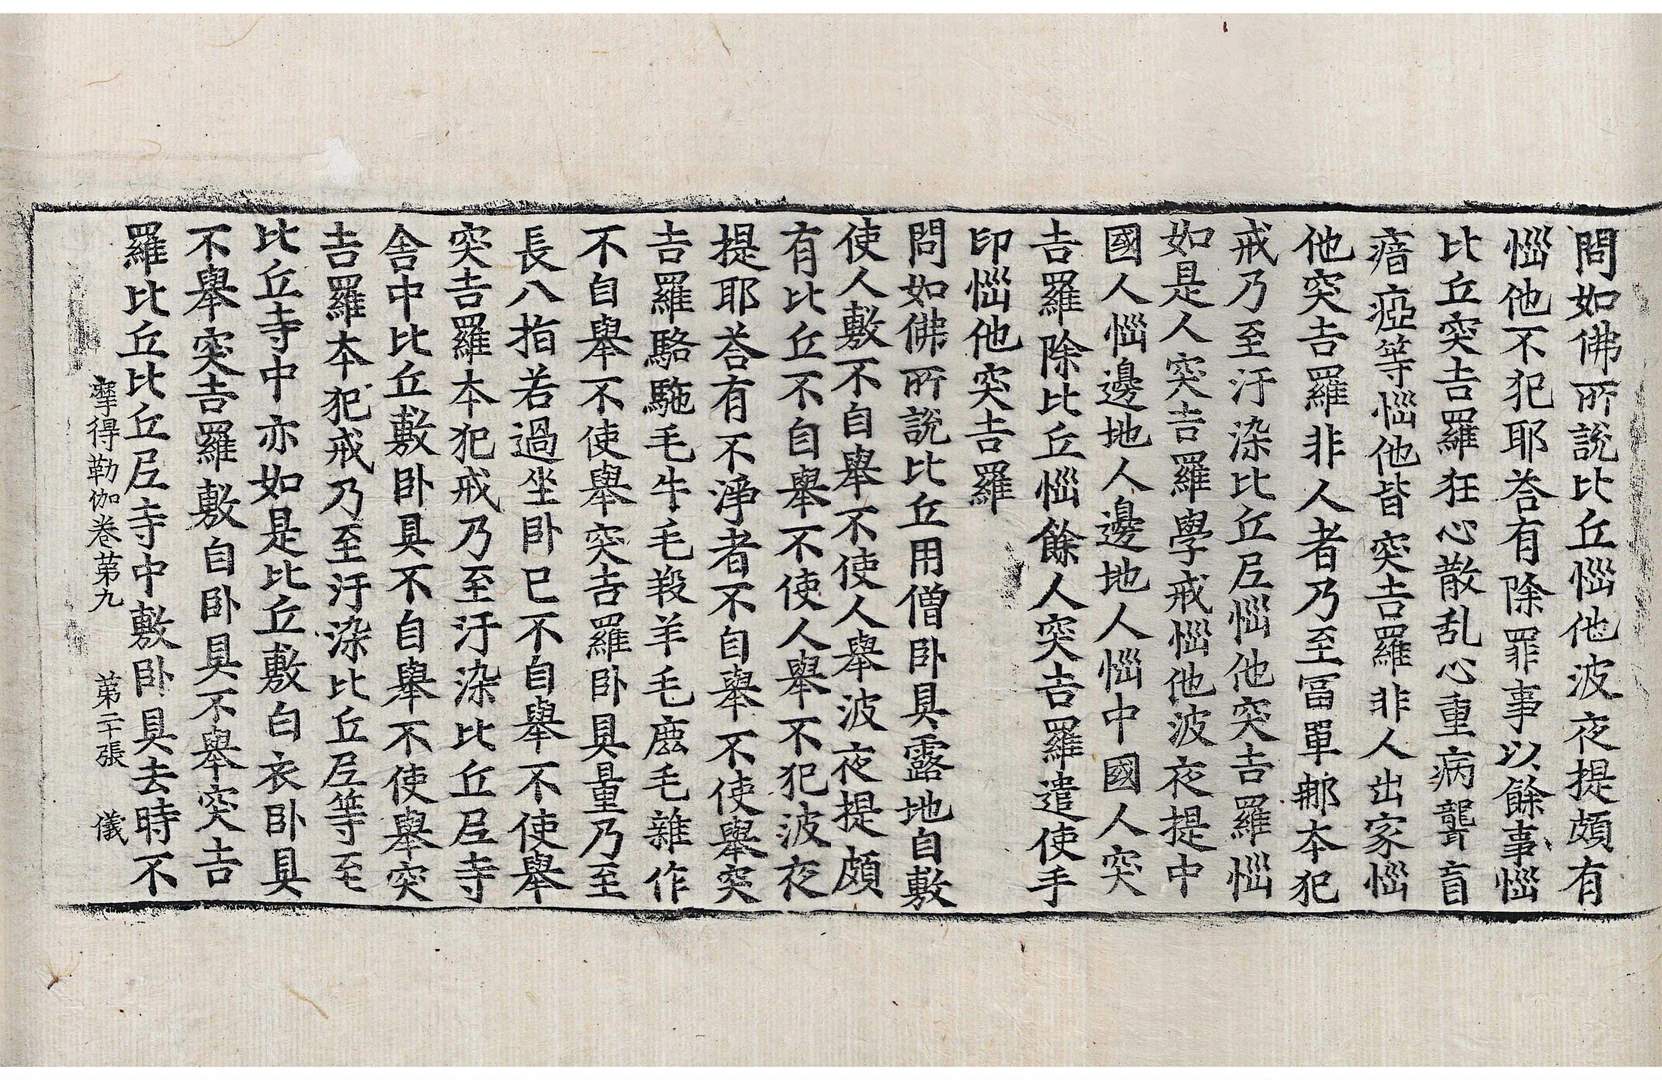 問如佛所說比丘惱他波夜提頗有
惱他不犯耶荅有除罪事以餘事惱
比丘突吉羅狂心散乱心重病聾盲
瘖瘂等惱他皆突吉羅非人出家惱
他突吉羅非人者乃至冨單那本犯
戒乃至汙染比丘尼惱他突吉羅惱
如是人突吉羅學戒惱他波夜提中
國人惱邊地人邊地人惱中國人突
吉羅除比丘惱餘人突吉羅遣使手
印惱他突吉羅
問如佛所說比丘用僧卧具露地自敷
使人敷不自舉不使人舉波夜提頗
有比丘不自舉不使人舉不犯波夜
提耶荅有不淨者不自舉不使舉突
吉羅駱駞毛牛毛羖羊毛鹿毛雜作
不自舉不使舉突吉羅卧具量乃至
長八指若過坐卧已不自舉不使舉
突吉羅本犯戒乃至汙染比丘尼寺
舍中比丘敷卧具不自舉不使舉突
吉羅本犯戒乃至汙染比丘尼等至
比丘寺中亦如是比丘敷白衣卧具
不舉突吉羅敷自卧具不舉突吉
羅比丘比丘尼寺中敷卧具去時不
摩得勒伽卷第九 第二十張 儀